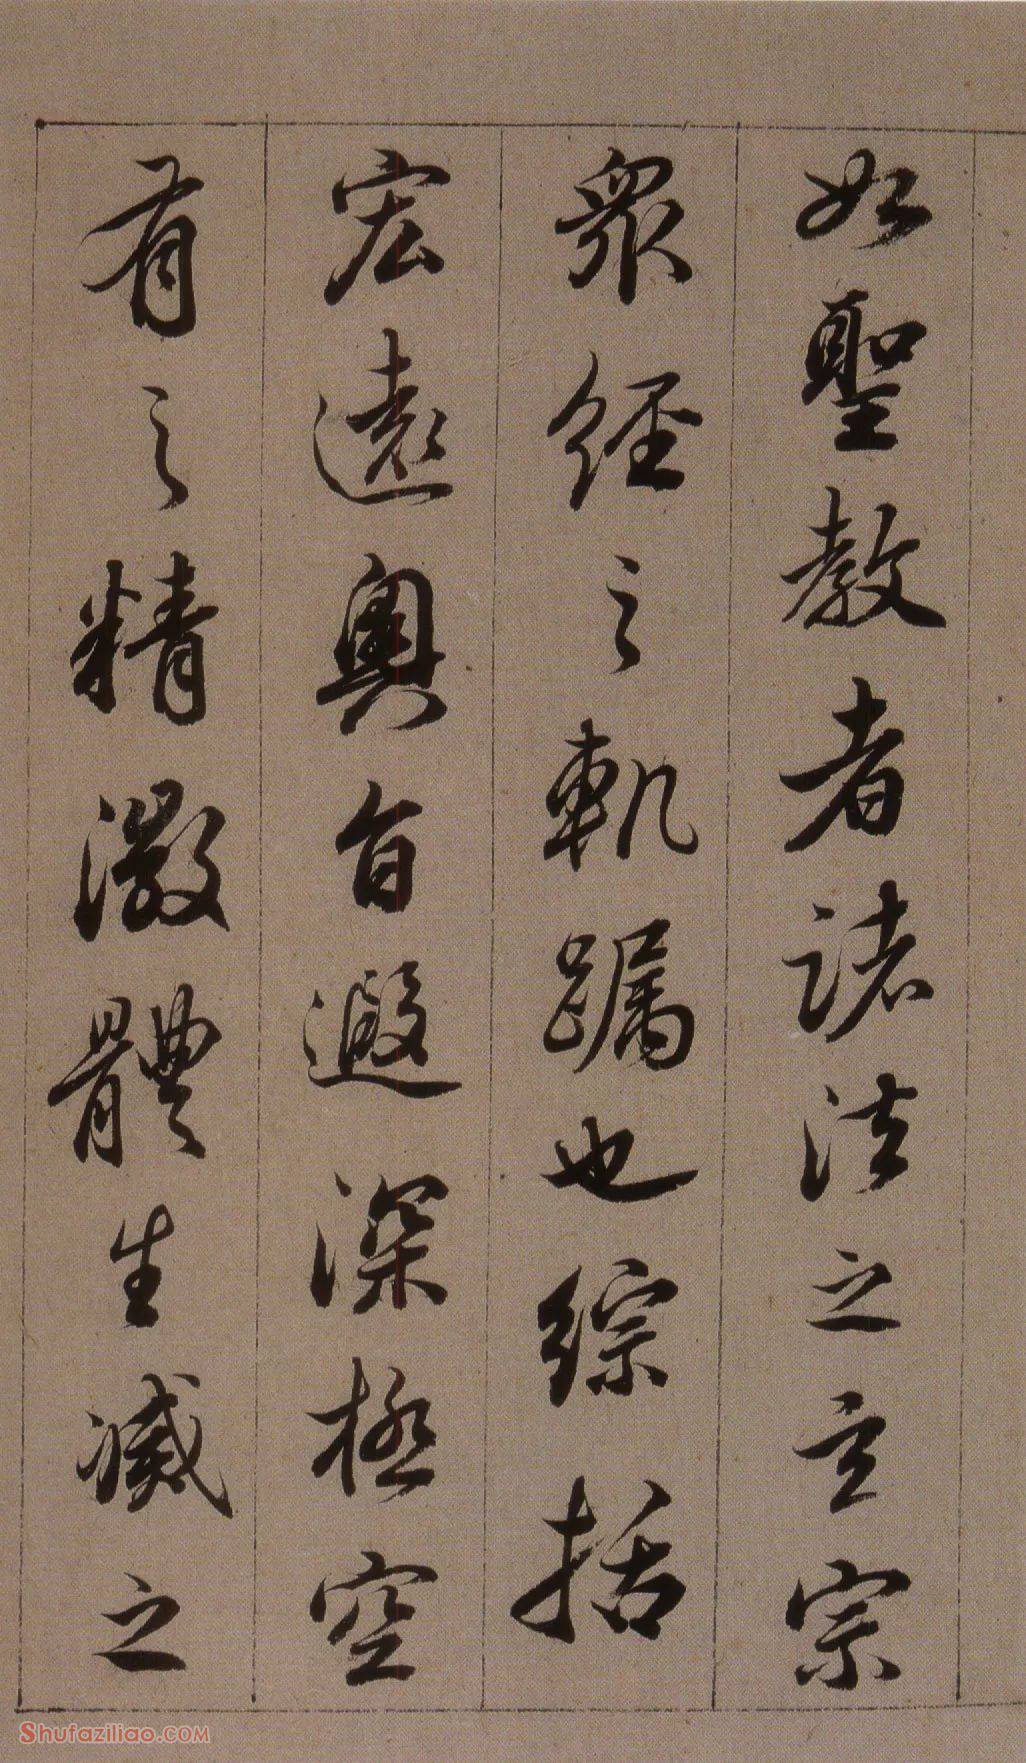 如聖教者諸法之玄宗
眾經之軌躅也綜括
宏遠奧旨遐深極空
有之精微體生滅之
Shufaziliao.COM